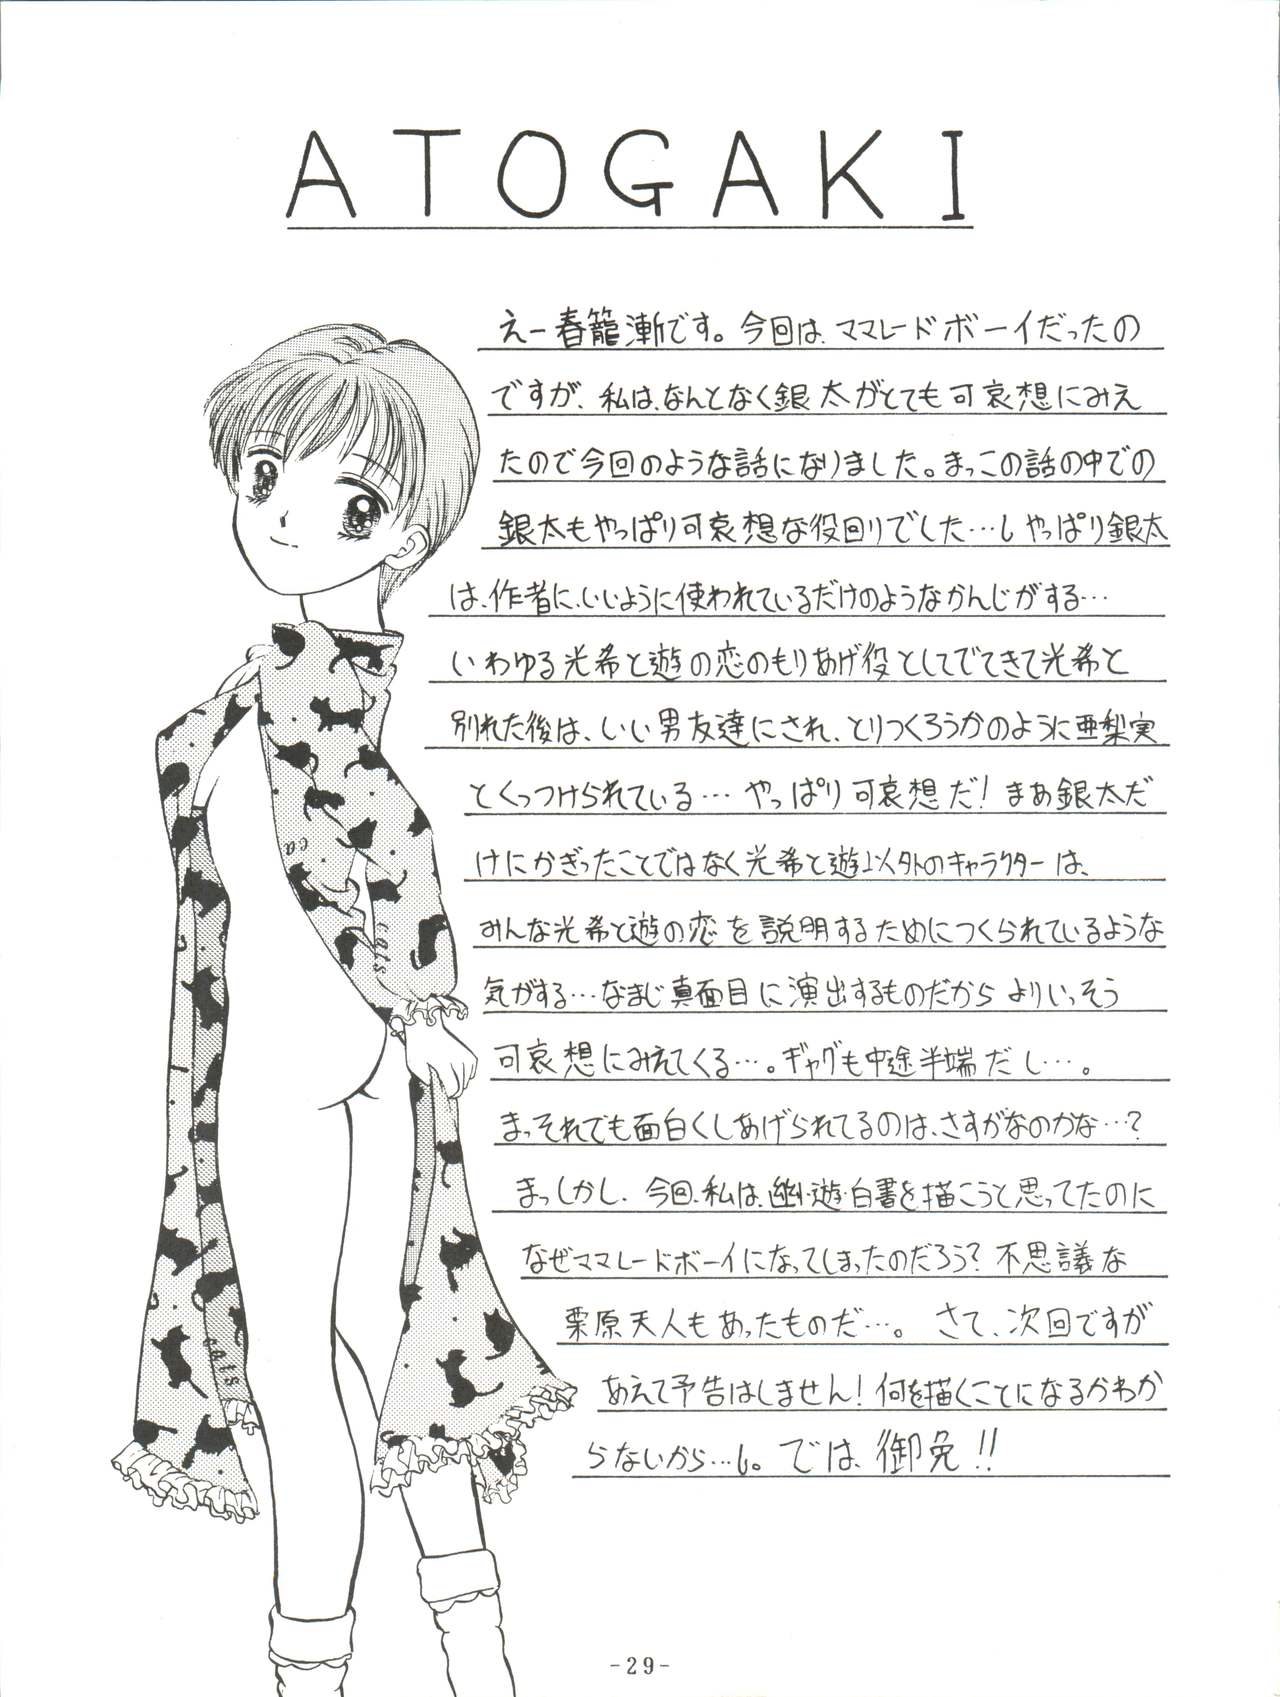 ATOGAKI
えー春籠漸です。今回は、ママレードボーイだったの
ですが、私は、なんとなく銀太がとても可哀想にみえ
たので今回のような話になりました。まっこの話の中での
銀太もやっぱり可哀想な役回りでした…しやっぱり銀太
は、作者に、いいように使われているだけのようなかんじがする…
いわゆる光希と遊の恋のもりあげ役としてでてきて光希と
別れた後は、いい男友達にされ、とりつくろうかのように亜梨実
とくっつけられている…やっぱり可哀想だ！まあ銀太だ
けにかぎったことではなく光希と遊以外のキャラクターは、
みんな光希と遊の恋を説明するためにつくられているような
気がする…なまじ真面目に演出するものだからよりいっそう
可哀想にみえてくる…。ギャグも中途半端だし…。
まっそれでも面白くしあげられてるのは、さすがなのかな…？
まっしかし、今回、私は、幽・遊・白書を描こうと思ってたのに
なぜママレードボーイになってしまったのだろう？不思議な
栗原天人もあったものだ…。さて、次回ですが
あえて予告はしません！何を描くことになるかわか
らないから…し。では、御免！！
ca
cats
cats
-29-